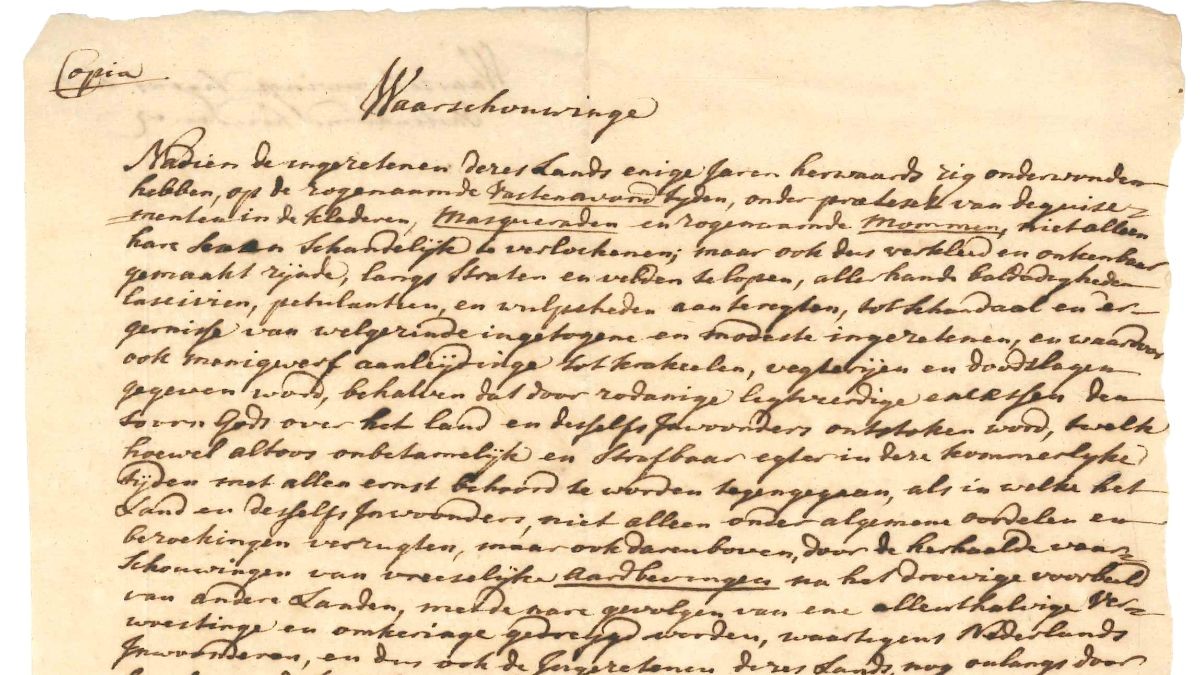 Copia
Waarschouwinge
Nadien de ingezetenen dezes Lands enige Jaren herwaards zig onderwonden
hebben, op de zogenaamde Vastenavond tyden, onder praetext van deguise-
menten in de kladeren, Masqueraden en zogenaamde Mommen, niet alleen
hare Schandelijk te verlochenen; maar ook dus verkleed en onkenbaar
gemaakt zijnde, langs Straten en velden te lopen, allerhande baldadigheden
lascivien, petulantien, en wulpsheden aanteregten, tot schandaal en er-
gernisse van welgezinde ingetogene en modeste ingezetenen, en waardoor
ook menigwerf aanleijdinge tot krakeelen, vegterijen en doodslagen
gegeven word, behalven dat door zodanige ligtveerdige excessen den
toorn Gods over het land en desselfs Inwoonders ontstoken word, twelk
hoewel altoos onbetamelijk en Strafbaar egter in deze kommerlyke
Tijden met allen ernst behoord te worden tegengegaan, als in welke het
Land en desselfs Inwoonders, niet alleen onder algemene oordelen en
bezoekingen verzugten, maar ook daerenboven, door de herhaalde waar-
Schouwingen van vreeselijke aardbevingen na het droevige voorbeeld
van andere Landen, met de nare gevolgen van ene allenthalvige Ver-
woestinge en omkeringe gedreijgd worden, waartegens Nederlands
Inwoonderen, en dus ook de Ingezetenen dezes Lands, nog onlangs door